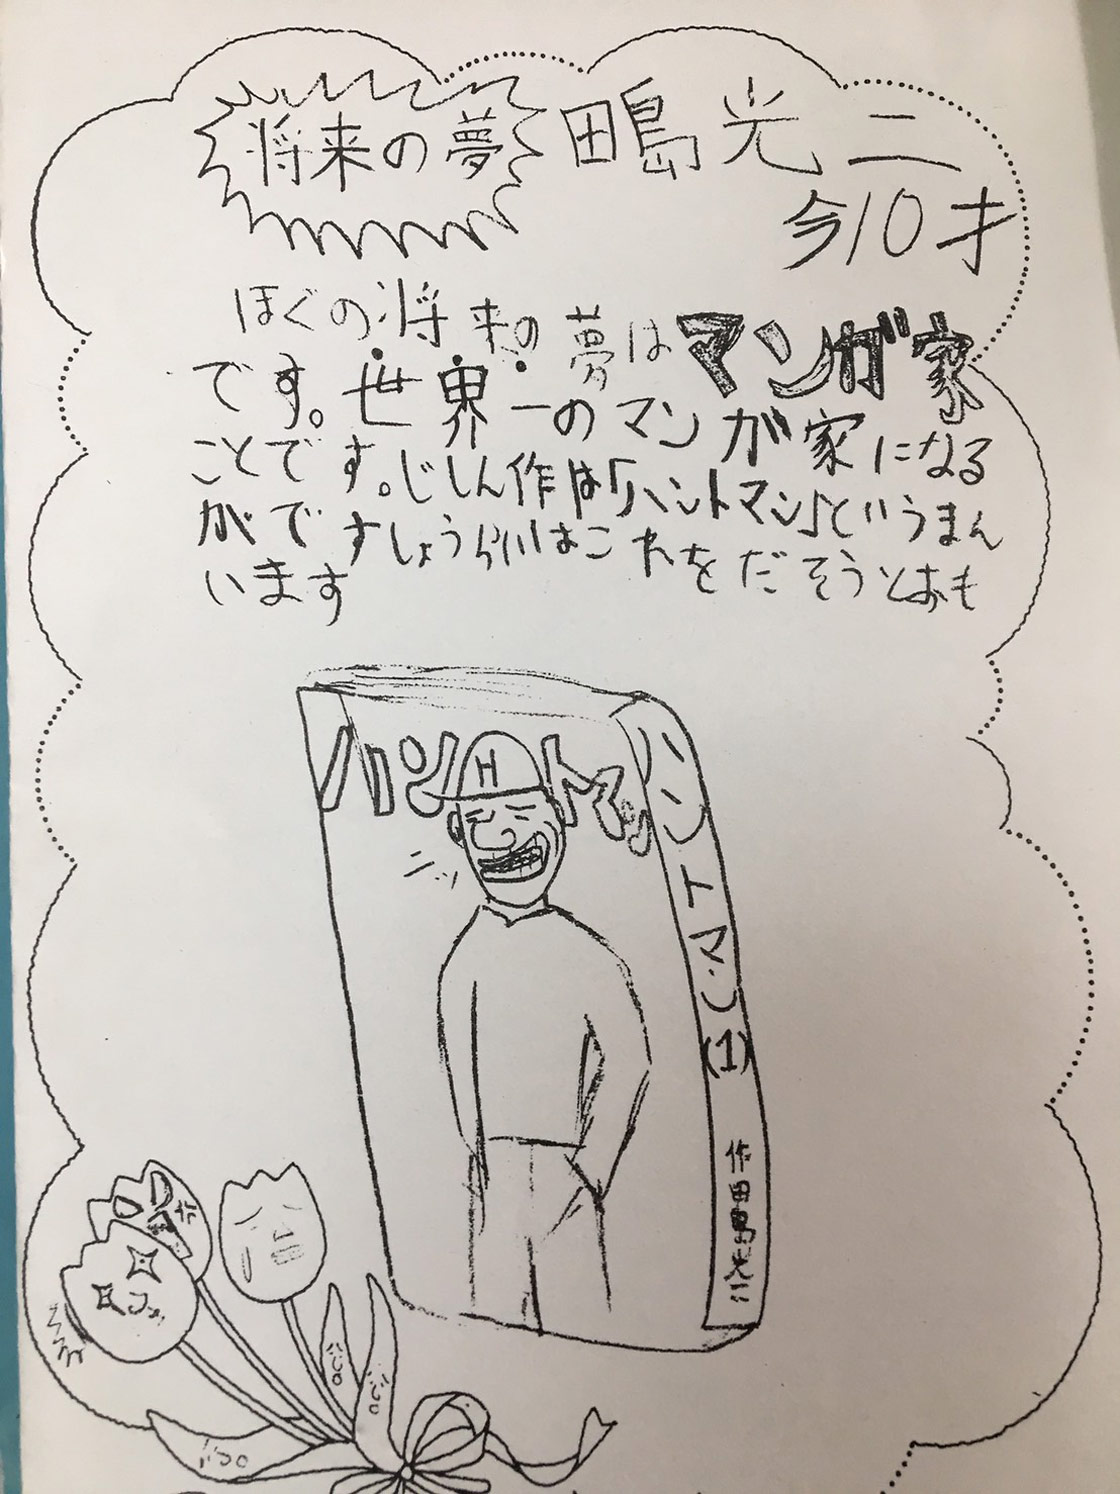 将来の夢 田島光二
今10才
ぼくの将来の夢はマンガ家
です。世界一のマンガ家になる
ことです。じしん作は「ハントマン」というまん
がですしょうらいはこれをだそうとおも
います
ハントマン
H
ニッ
ハントマン(1) 作田島光二